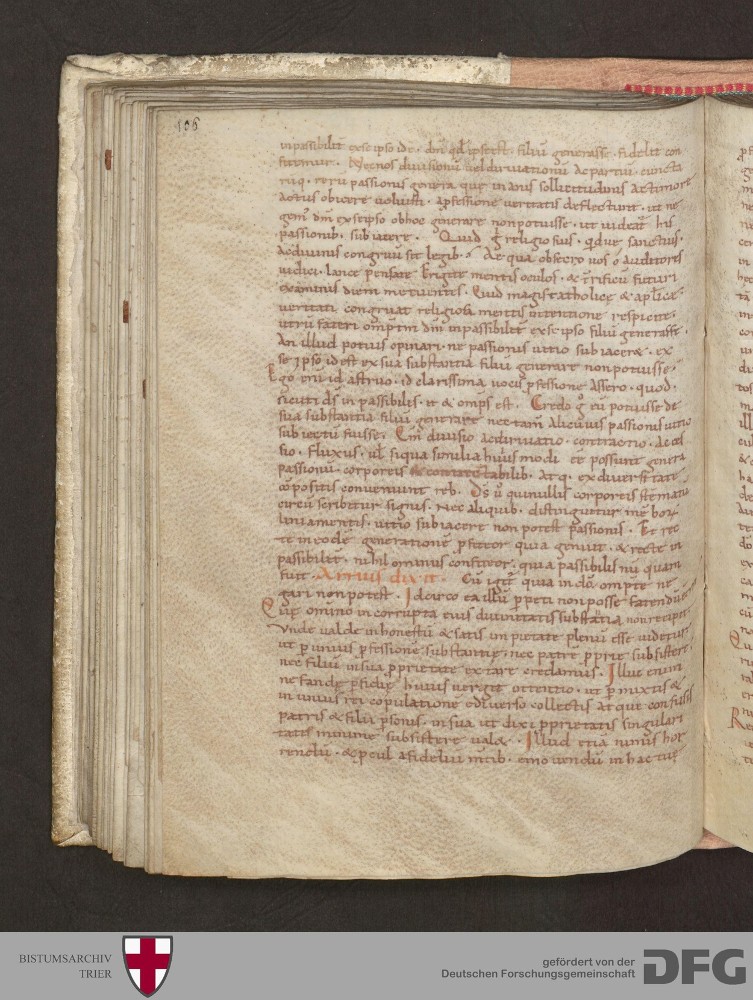 106
inpassibilit exseipso ide. dm qd ipse est. filiu generasse. fidelit con
fitemur. Necnos diuisionu uel diriuationu ac partiu. cuncta
ruq. reru passionis genera que inanis sollicitudinis ac timore
actus obicere uoluisti. a pfessione ueritatis deflectunt. ut ne
gem dm exseipso obhoc generare nonpotuisse. ut uideat his
passionib. subiacere. Quid g religiosius. qdue sanctius.
Ac diuinis congruu sit legib. Aequa obsecro uos o auditores
iudicii lance pensate. Erigite mentis oculos. & terrificu futuri
examinis diem metuentes. Quid magis catholice & aplice
ueritati congruat religiosa mentis intentione respicite.
utru fateri omptm dm inpassibilit exseipso filiu generasse.
An illud potius opinari. ne passionis uitio subiacere. ex
se ipso id est ex sua substantia filiu generare nonpotuisse.
Ego eni id astruo. id clarissima uocis pfessione assero. quod
sicuti ds inpassibilis. ut & omps est. Credo g eu potuisse de
sua substantia filiu generare nec tam alicuius passionis uitio
subiectu fuisse. Cm diuisio ac diriuatio. contractio. ac
sio. Fluxus. ul siqua similia huius modi ee possunt genera
passionu. corporeis & contrectabilib. Atq. ex diuersitate
copositis conueniunt reb. Ds u qui nullis corporeis
circu scribitur signis. Nec aliquib. distinguitur
liniamentis. uitio subiacere non potest passionis. Et rec
te in eode generatione pfiteor quia genuit. & recte in
passibilit. nihil ominus confiteor. quia passibilis nuquam
fuit. Arrius dixit. Cu igit quia in do ompte ne
gari non potest. Idcirco ea illu ppeti non posse fatendu
Que omino incorrupta eius diuinitatis substatia non recipit
Vnde ualde inhonestu & satis inpietate plenu esse uidetur
ut p unius pfessione substantie. nec patre pprie subsistere
nec filiu insua pprietate extare credamus. Illuc enim
nefande pfidie huius uergit intentio. ut pmixtis &
in unius rei copulatione ediuerso collectis atque confusis
patris & filii psonis. in sua ut dixi pprietatis singulari
tate minime subsistere uale. Illud etia nimis hor
rendu. & pcul afideliu mtib. emouendu in hac tue
BISTUMSARCHIV
TRIER
gefördert von der
Deutschen Forschungsgemeinschaft
DFG